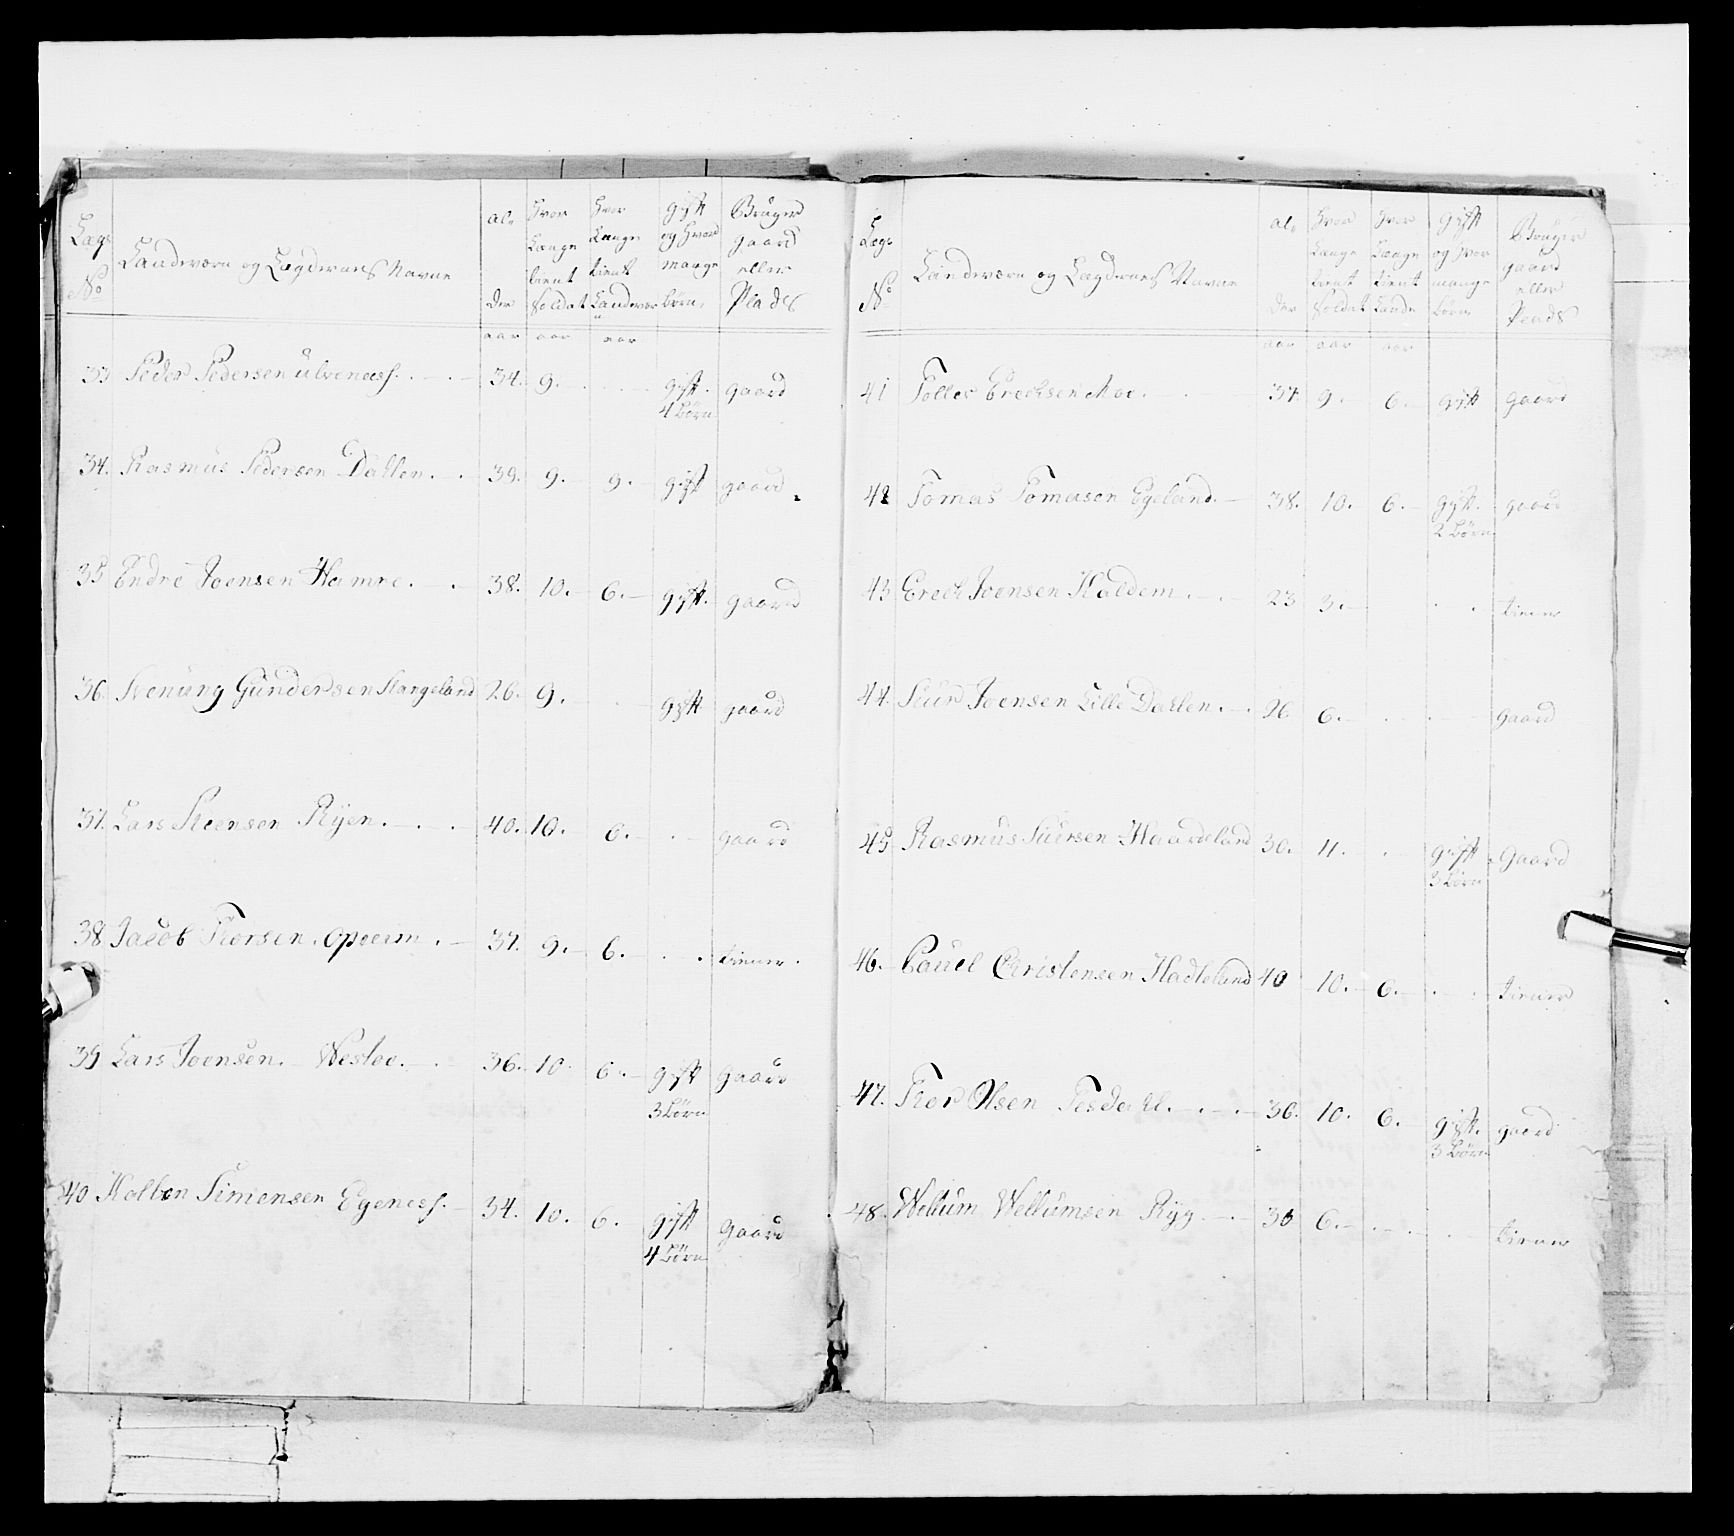 Læg
No
Landværn og Lægdværns Navne
al-
der
aar
Hvor
Længe
tient
Soldat
aar
Hvor
Længe
tient
Landvær
aar
gift
og Hvor
mange
børn
Bruger
gaard
eller
Plads
33 Peder Pedersen Ulvenæss 34. 9. gift. gaard
4 Børn
34. Rasmus Pedersen Dahlen 39. 9. 9. gift gaard
35 Endre Joensen Hamre 38. 10. 6. gift. gaard
36. Svenung Gundersen Stangeland 26. 9. gift gaard
37. Lars Steensen Ryen 40. 10. 6. gaard
38 Jacob Thorsen Opoeim 37. 9. 6. tiener
39 Lars Joensen Westoe 36. 10. 6. gift gaard
3 Børn
40 Holben Simensen Egenæss 34. 10. 6. gift gaard
4 Børn
Læg
No
Landværn og Lægdværns Navne
al-
der
aar
Hvor
Længe
tient
Soldat
aar
Hvor
Længe
tient
Landv
aar
gift
og Hvor
mange
børn
Bruger
gaard
eller
Plads
41 Tollev Erechsen Moe 37. 9. 6. gift gaard
42 Tomas Tomasen Egeland 38. 10. 6. gift. gaard
2 Børn
43 Erech Joensen Haldem 23 3. tiener
44. Siur Joensen Lille Dahlen 26 6. gaard
45 Rasmus Siursen Haardeland 30. 11. gift Gaard
3 Børn
46. Pauel Christensen Hadleland 40 10. 6. tiener
47. Thor Olsen Tesdahl 36. 10. 6. gift. gaard
3 Børn
48. Wellum Wellumsen Ryg 30 6. tiener